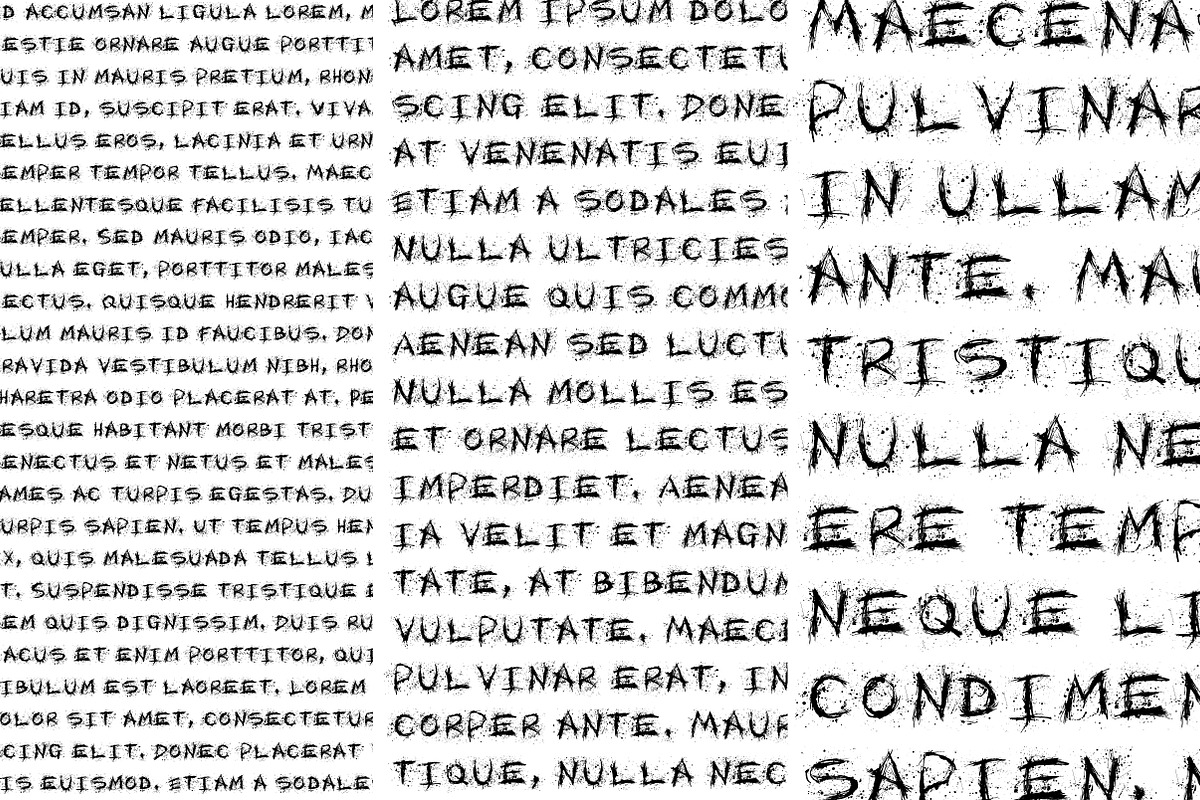 D ACCUMSAN LIGULA LOREM, M
ESTIE ORNARE AUGUE PORTTIT
UIS IN MAURIS PRETIUM, RHON
IAM ID, SUSCIPIT ERAT. VIVA
ELLUS EROS, LACINIA ET URN
EMPER TEMPOR TELLUS. MAEC
ELLENTESQUE FACILISIS TU
EMPER. SED MAURIS ODIO, IAC
ULLA EGET, PORTTITOR MALES
ECTUS. QUISQUE HENDRERIT V
LUM MAURIS ID FAUCIBUS. DON
RAVIDA VESTIBULUM NIBH, RHO
HARETRA ODIO PLACERAT AT. PE
ESQUE HABITANT MORBI TRIST
ENECTUS ET NETUS ET MALES
AMES AC TURPIS EGESTAS. DU
URPIS SAPIEN. UT TEMPUS HEN
X, QUIS MALESUADA TELLUS
T. SUSPENDISSE TRISTIQUE
EM QUIS DIGNISSIM. DUIS RU
ACUS ET ENIM PORTTITOR, QUI
IBULUM EST LAOREET. LOREM
OLOR SIT AMET, CONSECTETUR
CING ELIT. DONEC PLACERAT
IS EUISMOD. ETIAM A SODALE
LOREM IPSUM DOLO
AMET, CONSECTETU
SCING ELIT. DONE
AT VENENATIS EUI
ETIAM A SODALES
NULLA ULTRICIES
AUGUE QUIS COMMO
AENEAN SED LUCTU
NULLA MOLLIS ES
ET ORNARE LECTUS
IMPERDIET. AENEA
IA VELIT ET MAGN
TATE, AT BIBENDUM
VULPUTATE. MAECE
PULVINAR ERAT, IN
CORPER ANTE. MAUR
TIQUE, NULLA NEC
MAECENA
PULVINAR
IN ULLAM
ANTE. MAU
TRISTIQU
NULLA NE
ERE TEMP
NEQUE LI
CONDIMEN
SAPIEN. N